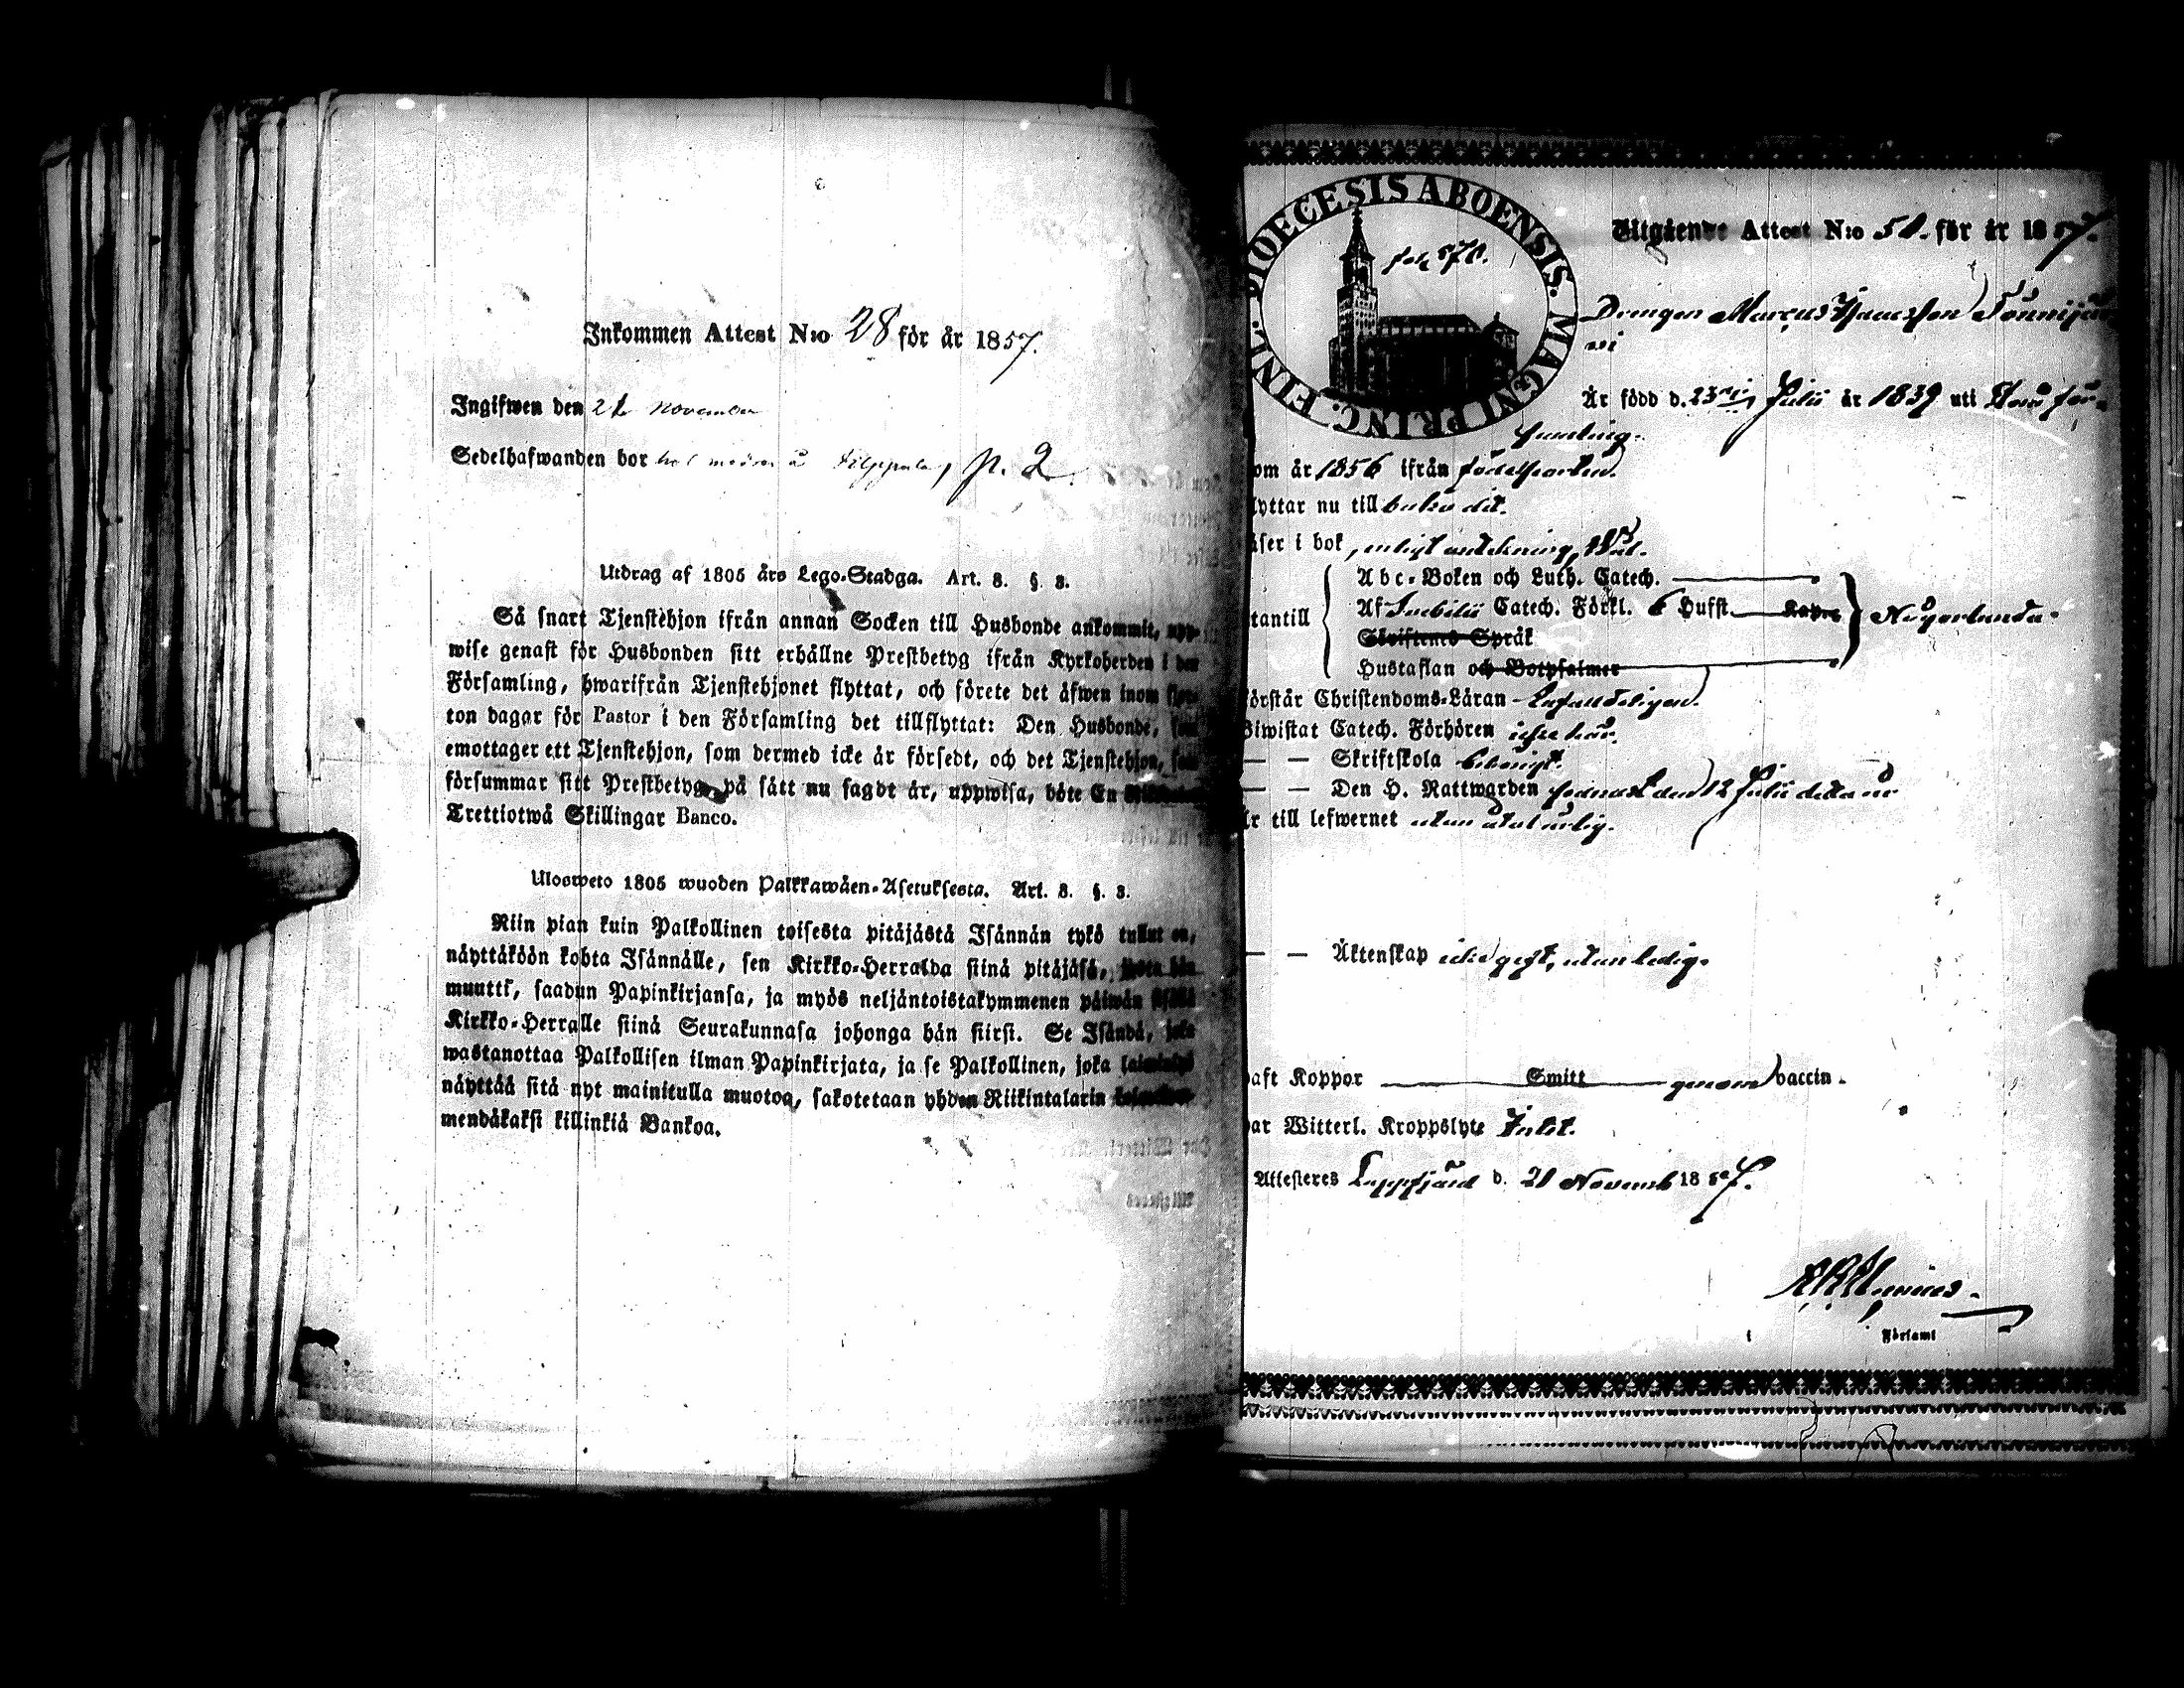 Inkommen Attest N:o 28 för år 1857.
Ingifwen den 21 November
Sedelhafwanden bor hos modren å Filppula, p. 2
Utdrag af 1805 års Lego-Stadga. Art. 3. §. 3.
Så snart Tjenstehjon ifrån annan Socken till Husbonde ankommit, upp-
wise genast för Husbonden sitt erhållne Prestbetyg ifrån Kyrkoherden i den
Församling, hwarifrån Tjenstehjonet flyttat, och förete det äfwen inom fjor-
ton dagar för Pastor i den Församling det tillflyttat: Den Husbonde, som
emottager ett Tjenstehjon, som dermed icke är försedt, och det Tjenstehjon, som
försummar sitt Prestbetyg, på sätt nu sagdt är, uppwisa, böte En
Trettiotwå Skillingar Banco.
Ulosweto 1805 wuoden Palkkawäen-Asetuksesta. Art. 3. §. 3.
Niin pian kuin Palkollinen toisesta pitäjästä Isännän tykö tullut on,
näyttäköön kohta Isännälle, sen Kirkko-Herralda siinä pitäjäsä, josta hän
muutti, saadun Papinkirjansa, ja myös neljäntoistakymmenen päiwän
Kirkko-Herralle siinä Seurakunnasa johonga hän siirsi. Se Isändä, joka
wastanottaa Palkollisen ilman Papinkirjata, ja se Palkollinen, joka
näyttää sitä nyt mainitulla muotoa, sakotetaan yhden Riikintalarin
mendäkaksi killinkiä Bankoa.
DIOECESIS ABOENSIS. MAGNI PRINC. FINL.
fol. 570.
Utgående Attest N:o 50. för år 1857.
Drengen Marcus
Är född d. 23 Julii år 1839 uti Storå för-
samling.
om år 1856 ifrån födelseorten.
lyttar nu till bakå dit.
äser i bok, enligt antekning, väl.
Abc-Boken och Luth. Catech.
tantill Af Svebilii Catech. Förkl. 6 Hufst. Kapit. Någorlunda.
Skriftenes Språk
Hustaflan och Botpsalmer
örstår Christendoms-Läran
Biwistat Catech. Förhören icke här.
— — Skriftskola behörigt.
— — Den H. Nattwarden sednast den 12 Julii detta år
Är till lefwernet utan ärlig.
— — Äktenskap icke gift, utan ledig.
haft Koppor Smitt genom vaccin.
har Witterl. Kroppslyte Intet.
Attesteres Lappfjärd d. 20 Novemb 1857.
Församl